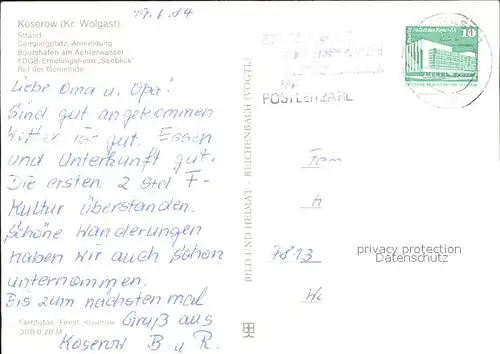 19.6.84
Koserow (Kr. Wolgast)
Strand
Campingplatz, Anmeldung
Bootshafen am Achterwasser
FDGB-Erholungsheim „Seeblick"
Rat der Gemeinde
Liebe Oma u. Opa!
Sind gut angekommen
Wetter ist gut. Essen
und Unterkunft gut.
Die ersten 2 Std F-
Kultur überstanden.
Schöne Wanderungen
haben wir auch schon
unternommen.
Bis zum nächsten mal
Gruß aus
Koserow B u. R.
Farbfotos: Ernst, Koserow
DDR 0,20 M
BILD UND HEIMAT · REICHENBACH (VOGTL)
POSTLEITZAHL
10
Fam
7813
privacy protection
Datenschutz